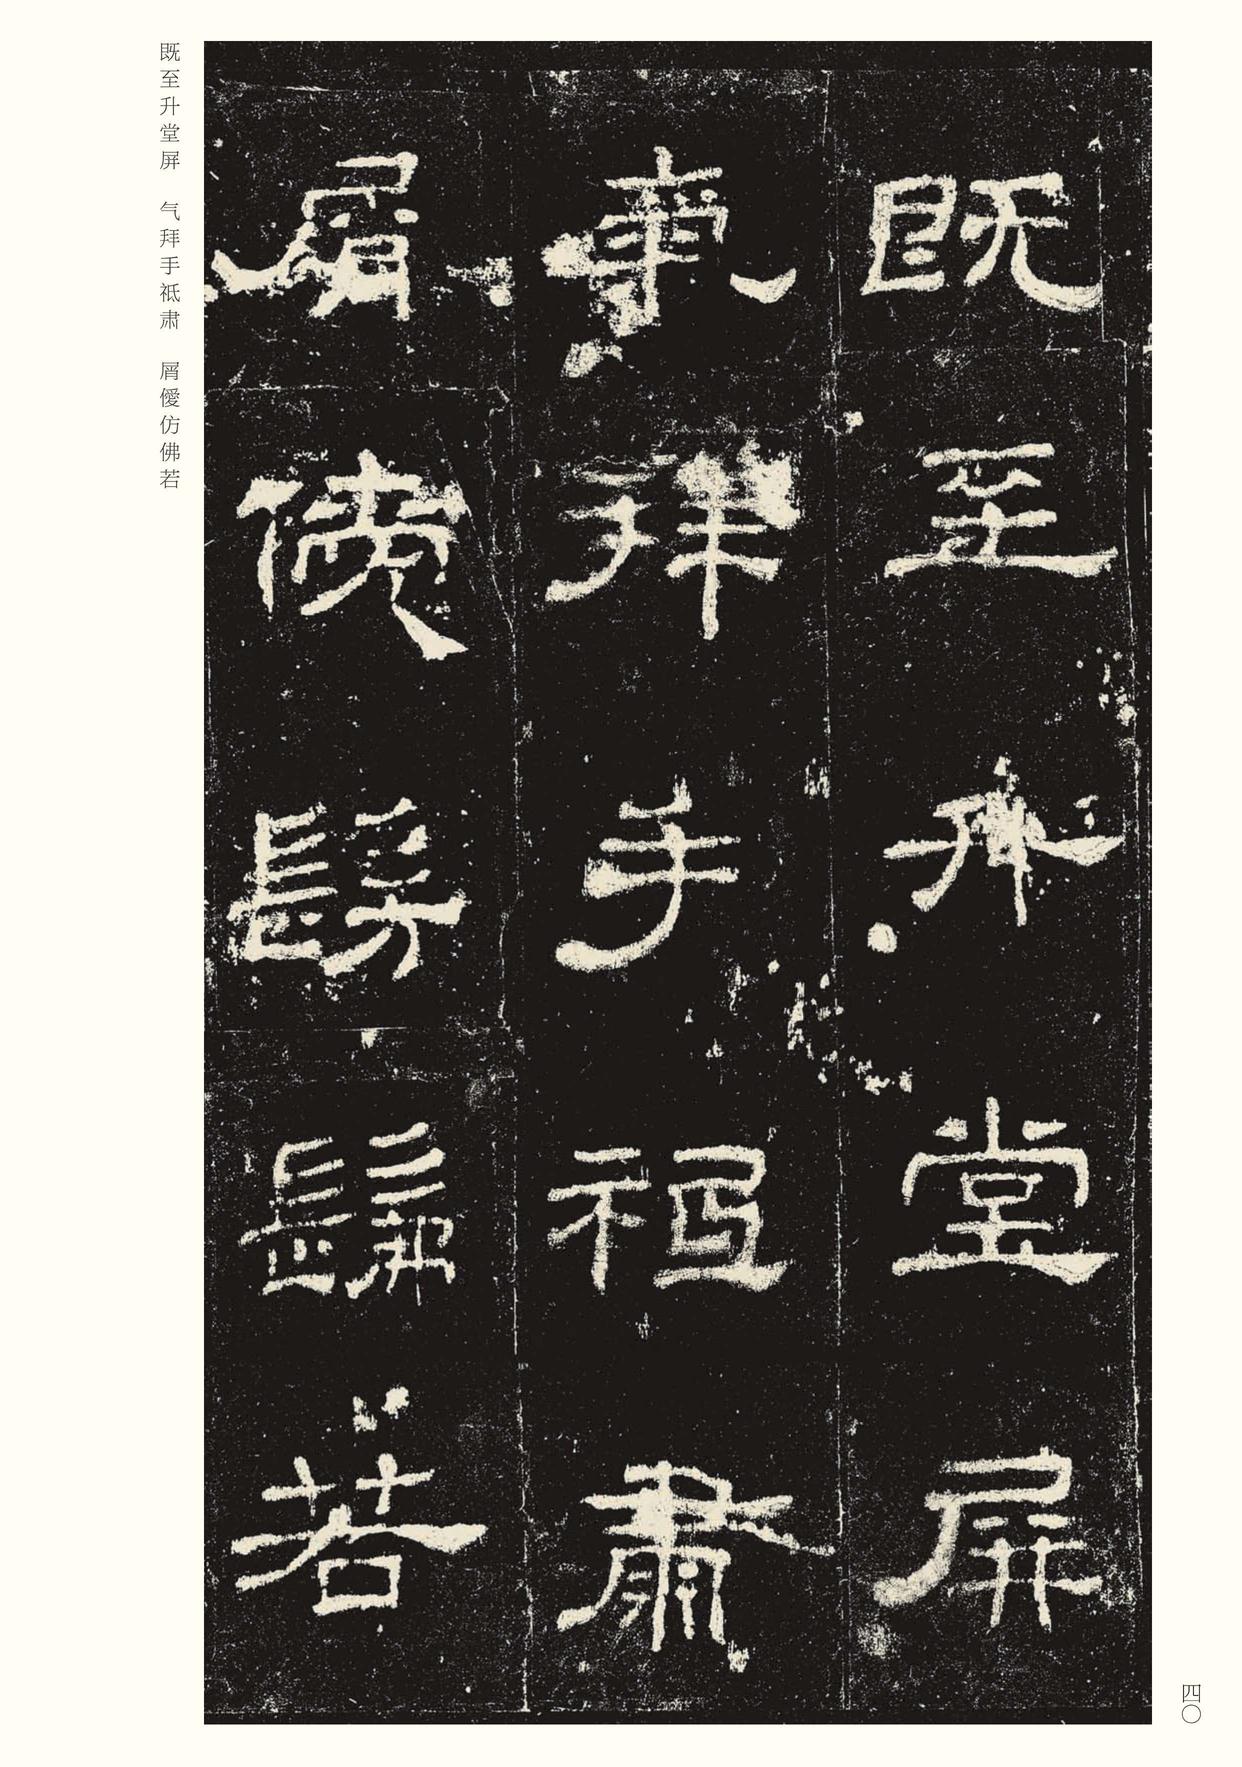 既至升堂屏
氣拜手祗肅
屑僾髣髴若
既至升堂屏　气拜手祗肃　屑僾仿佛若
四〇